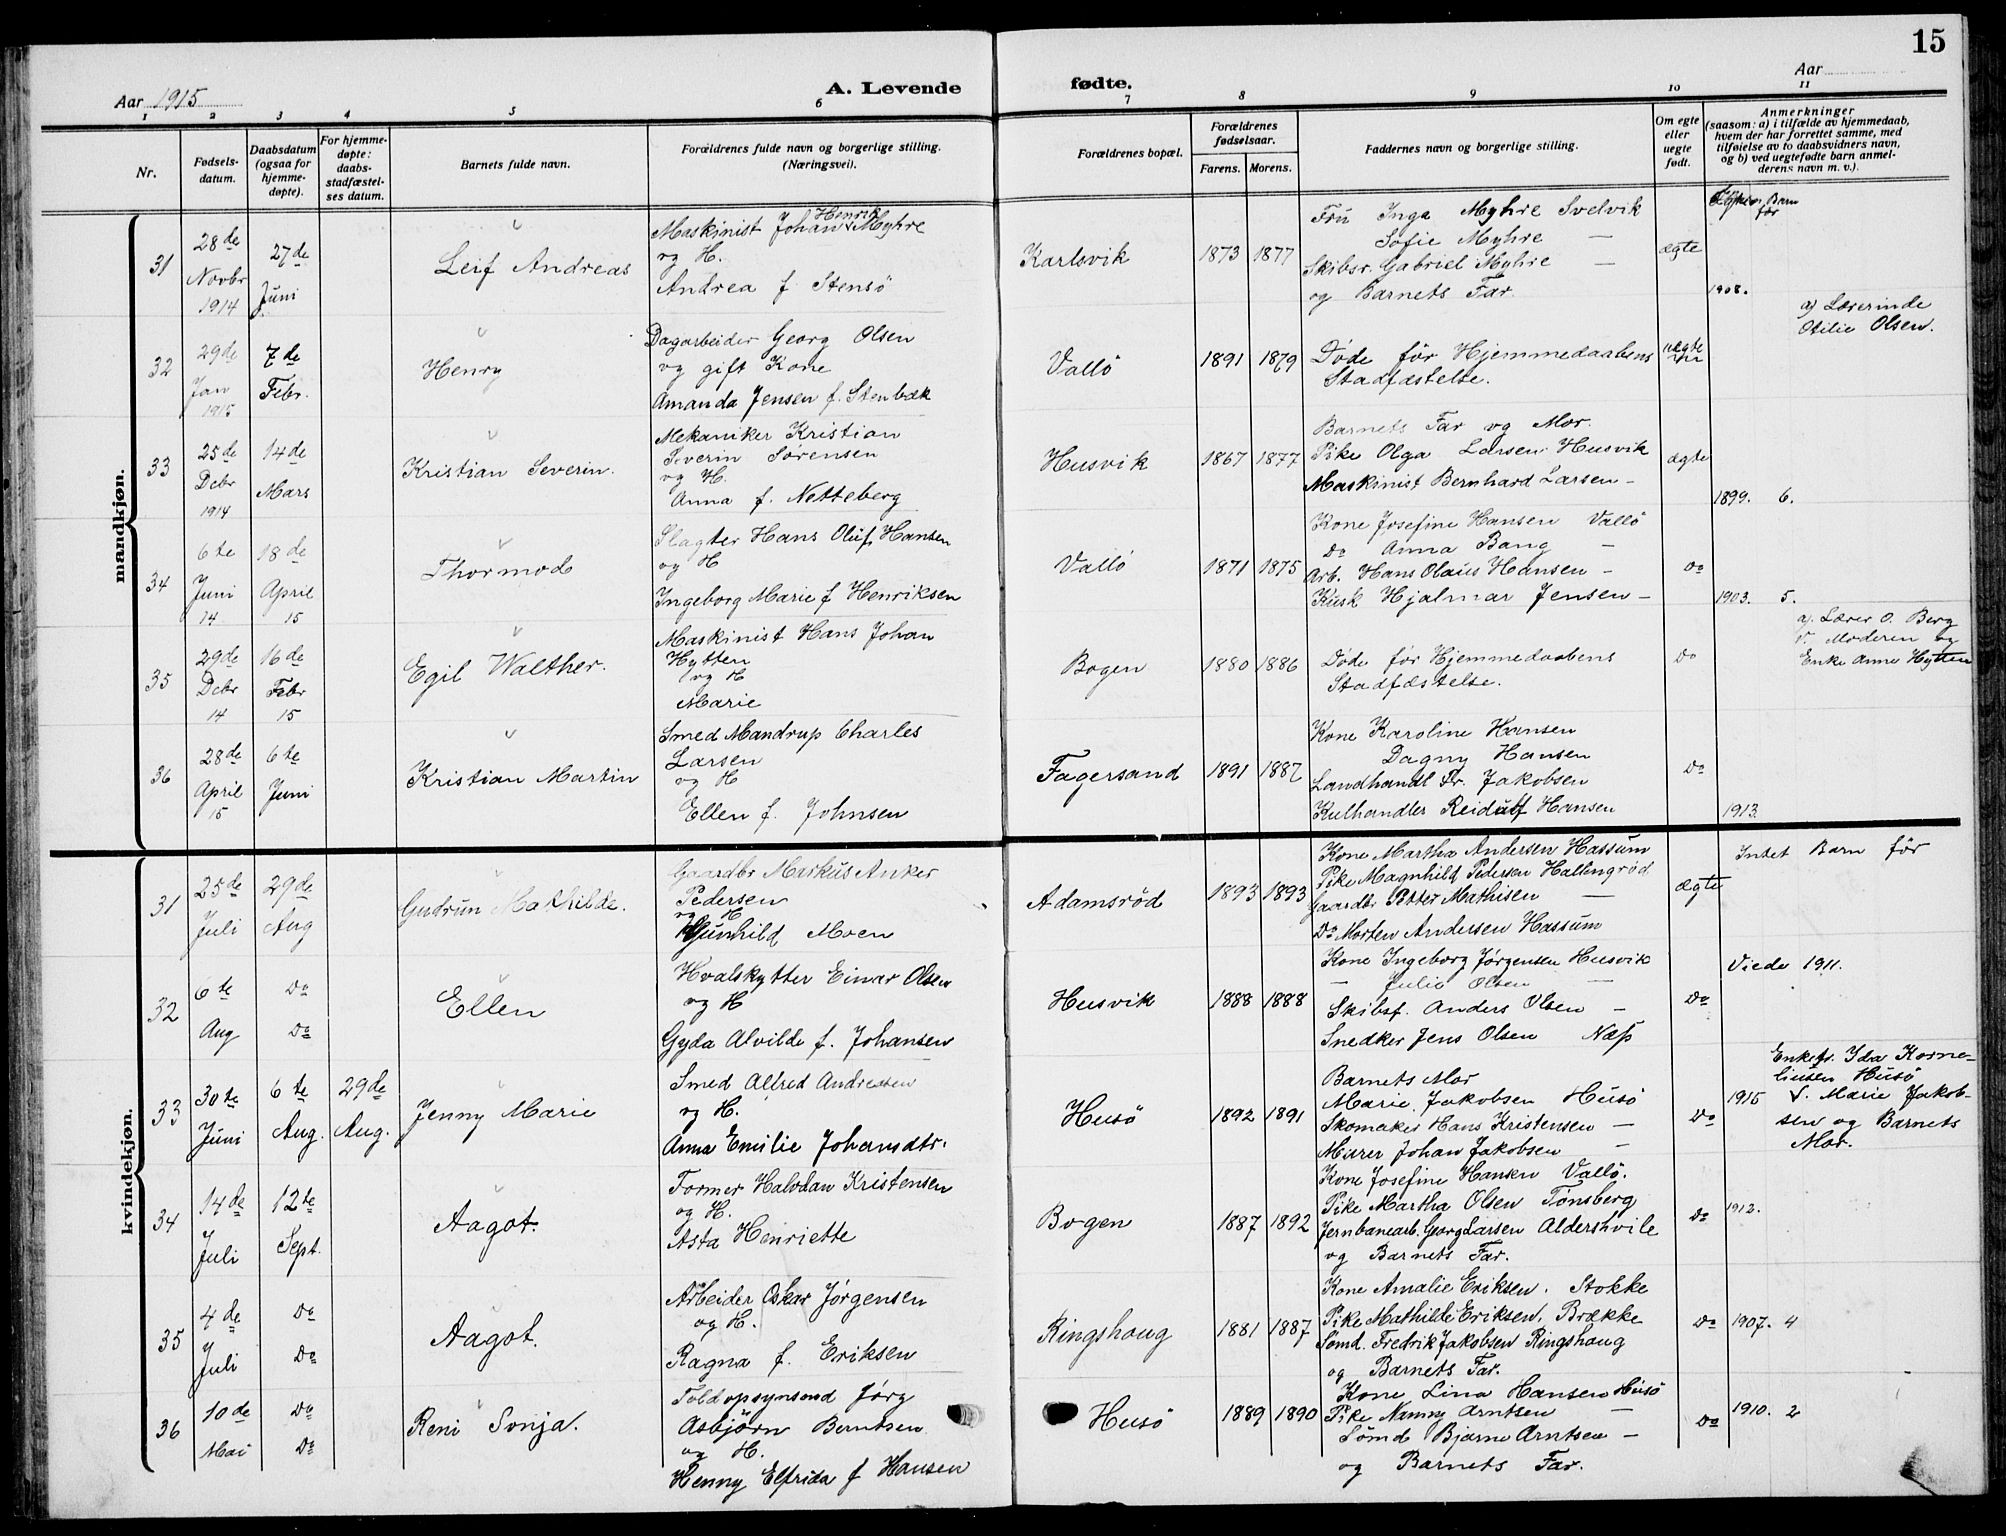 15
Aar 1915
A. Levende
fødte.
Aar
1 2 3 4 5 6 7 8 9 10 11
Nr.
Fødsels-
datum.
Daabsdatum
(ogsaa for
hjemme-
døpte).
For hjemme-
døpte:
daabs-
stadfæstel-
ses datum.
Barnets fulde navn.
Forældrenes fulde navn og borgerlige stilling.
(Næringsvei).
Forældrenes bopæl.
Forældrenes
fødselsaar.
Farens. Morens.
Faddernes navn og borgerlige stilling.
Om egte
eller
uegte
født.
Anmerkninger
(saasom: a) i tilfælde av hjemmedaab,
hvem der har forrettet samme, med
tilføielse av to daabsvidners navn,
og b) ved uegtefødte barn anmel-
derens navn m. v.).
mandkjøn.
31
28de
Novbr
1914
27de
Juni
Leif Andreas
Maskinist Johan Henrik Myhre
og H.
Andrea f. Stensö
Karlsvik
1873 1877
Fru Inga Myhre Svelvik
Sofie Myhre —
Skibsr. Gabriel Myhre —
og Barnets Far.
ægte
Barn
før
1908.
32
29de
Jan
1915
7de
Febr.
Henry
Dagarbeider Georg Olsen
og gift Kone
Amanda Jensen f. Stenbæk
Vallö
1891 1879
Døde før Hjemmedaabens
Stadfæstelse.
uægte
a) Lærerinde
Otilie Olsen.
33
25de
Debr
1914
14de
Mars
Kristian Severin.
Mekaniker Kristian
Severin Sørensen
og H.
Anna f. Netteberg
Husvik
1867 1877
Barnets Far og Mor.
Pike Olga Larsen Husvik
Maskinist Bernhard Larsen —
ægte
1899. 6.
34
6te
Juni
14
18de
April
15
Thormod
Slagter Hans Oluf Hansen
og H
Ingeborg Marie f Henriksen
Vallö
1871 1875
Kone Josefine Hansen Vallö
Do Anna Bang —
Arb. Hans Olaus Hansen —
Kusk Hjalmar Jensen —
Do
1903. 5.
35
29de
Debr
14
16de
Febr
15
Egil Walther.
Maskinist Hans Johan
Hytten
og H
Marie
Bogen
1880 1886
Døde før Hjemmedaabens
Stadfæstelse.
Do
a). Lærer O. Berg
v. Moderen og
Enke Anne Hytten
36
28de
April
15
6te
Juni
Kristian Martin
Smed Mandrup Charles
Larsen
og H
Ellen f. Johnsen
Fagersand
1891 1887
Kone Karoline Hansen
Dagny Hansen
Landhandl Fr. Jakobsen
Kulhandler Reidulf Hansen
Do
1913.
kvindekjøn.
31
25de
Juli
29de
Aug
Gudrun Mathilde.
Gaardbr Markus Anker
Pedersen
og H
Gunhild Moen
Adamsrød
1893 1893
Kone Martha Andersen Hassum
Pike Magnhild Pedersen Hallingrød
Gaardbr Petter Mathisen —
Do Morten Andersen Hassum
Ægte
Intet Barn før
32
6te
Aug
Do
Do
Ellen
Hvalskytter Einar Olsen
og H
Gyda Alvilde f. Johansen
Husvik
1888 1888
Kone Ingeborg Jørgensen Husvik
— Julie Olsen —
Skibsf. Anders Olsen —
Snedker Jens Olsen Næss
Do
Viede 1911.
33
30te
Juni
6te
Aug.
29de
Aug.
Jenny Marie
Smed Alfred Andresen
og H.
Anna Emilie Johansdtr.
Husö
1892 1891
Barnets Mor
Marie Jakobsen Husö
Skomaker Hans Kristensen —
Murer Johan Jakobsen —
Do
1915
Enkefr. Ida Korne-
liusen Husö
v. Marie Jakob-
sen og Barnets
Mor.
34
14de
Juli
12te
Sept.
Aagot.
Former Halvdan Kristensen
og H.
Asta Henriette
Bogen
1887 1892
Kone Josefine Hansen Vallö.
Pike Martha Olsen Tønsberg
Jernbanearb. Georg Larsen Aldershvile
og Barnets Far.
Do
1912.
35
4de
Juli
Do
Do
Aagot.
Arbeider Oskar Jørgensen
og H.
Ragna f. Eriksen
Ringshaug
1881 1887
Kone Amalie Eriksen. Stokke
Pike Mathilde Eriksen. Brække
Sømd. Fredrik Jakobsen Ringshaug
og Barnets Far.
Do
1907. 4
36
10de
Mai
Do
Do
Reni Sonja.
Toldopsynsmd Jörg
Asbjörn Berntsen
og H.
Henny Elfrida f Hansen
Husö
1889 1890
Kone Lina Hansen Husö
Pike Nanny Arntsen —
Sömd Bjarne Arntsen —
og Barnets Far.
Do
1910. 2